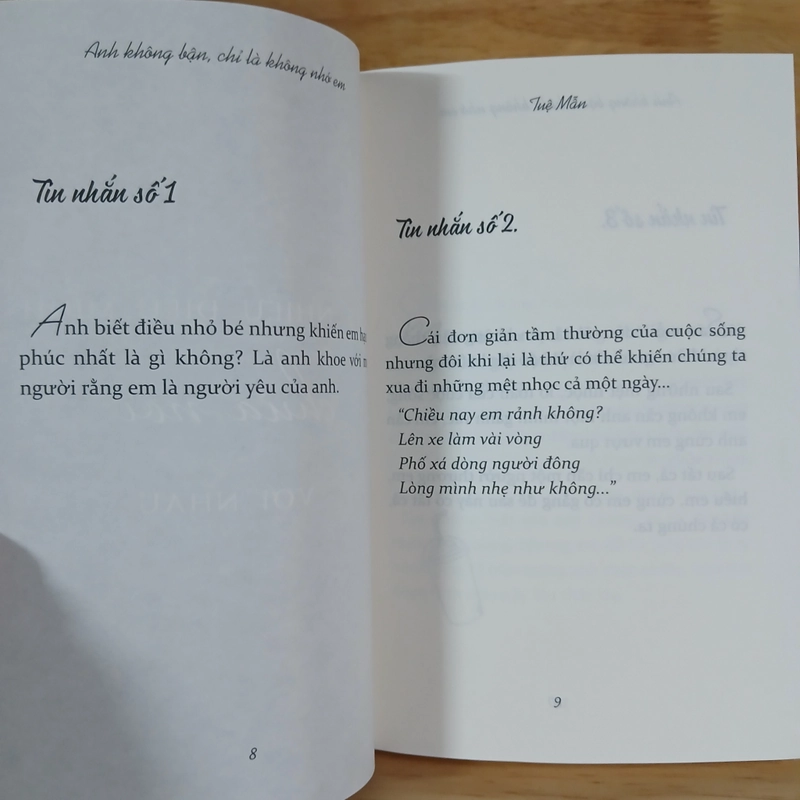 Anh không bận, chỉ là không nhớ em
Tin nhắn số 1
Anh biết điều nhỏ bé nhưng khiến em
phúc nhất là gì không? Là anh khoe với
người rằng em là người yêu của anh.
8
Tuệ Mẫn
Tin nhắn số 2.
Cái đơn giản tầm thường của cuộc sống
nhưng đôi khi lại là thứ có thể khiến chúng ta
xua đi những mệt nhọc cả một ngày...
“Chiều nay em rảnh không?
Lên xe làm vài vòng
Phố xá dòng người đông
Lòng mình nhẹ như không...”
9